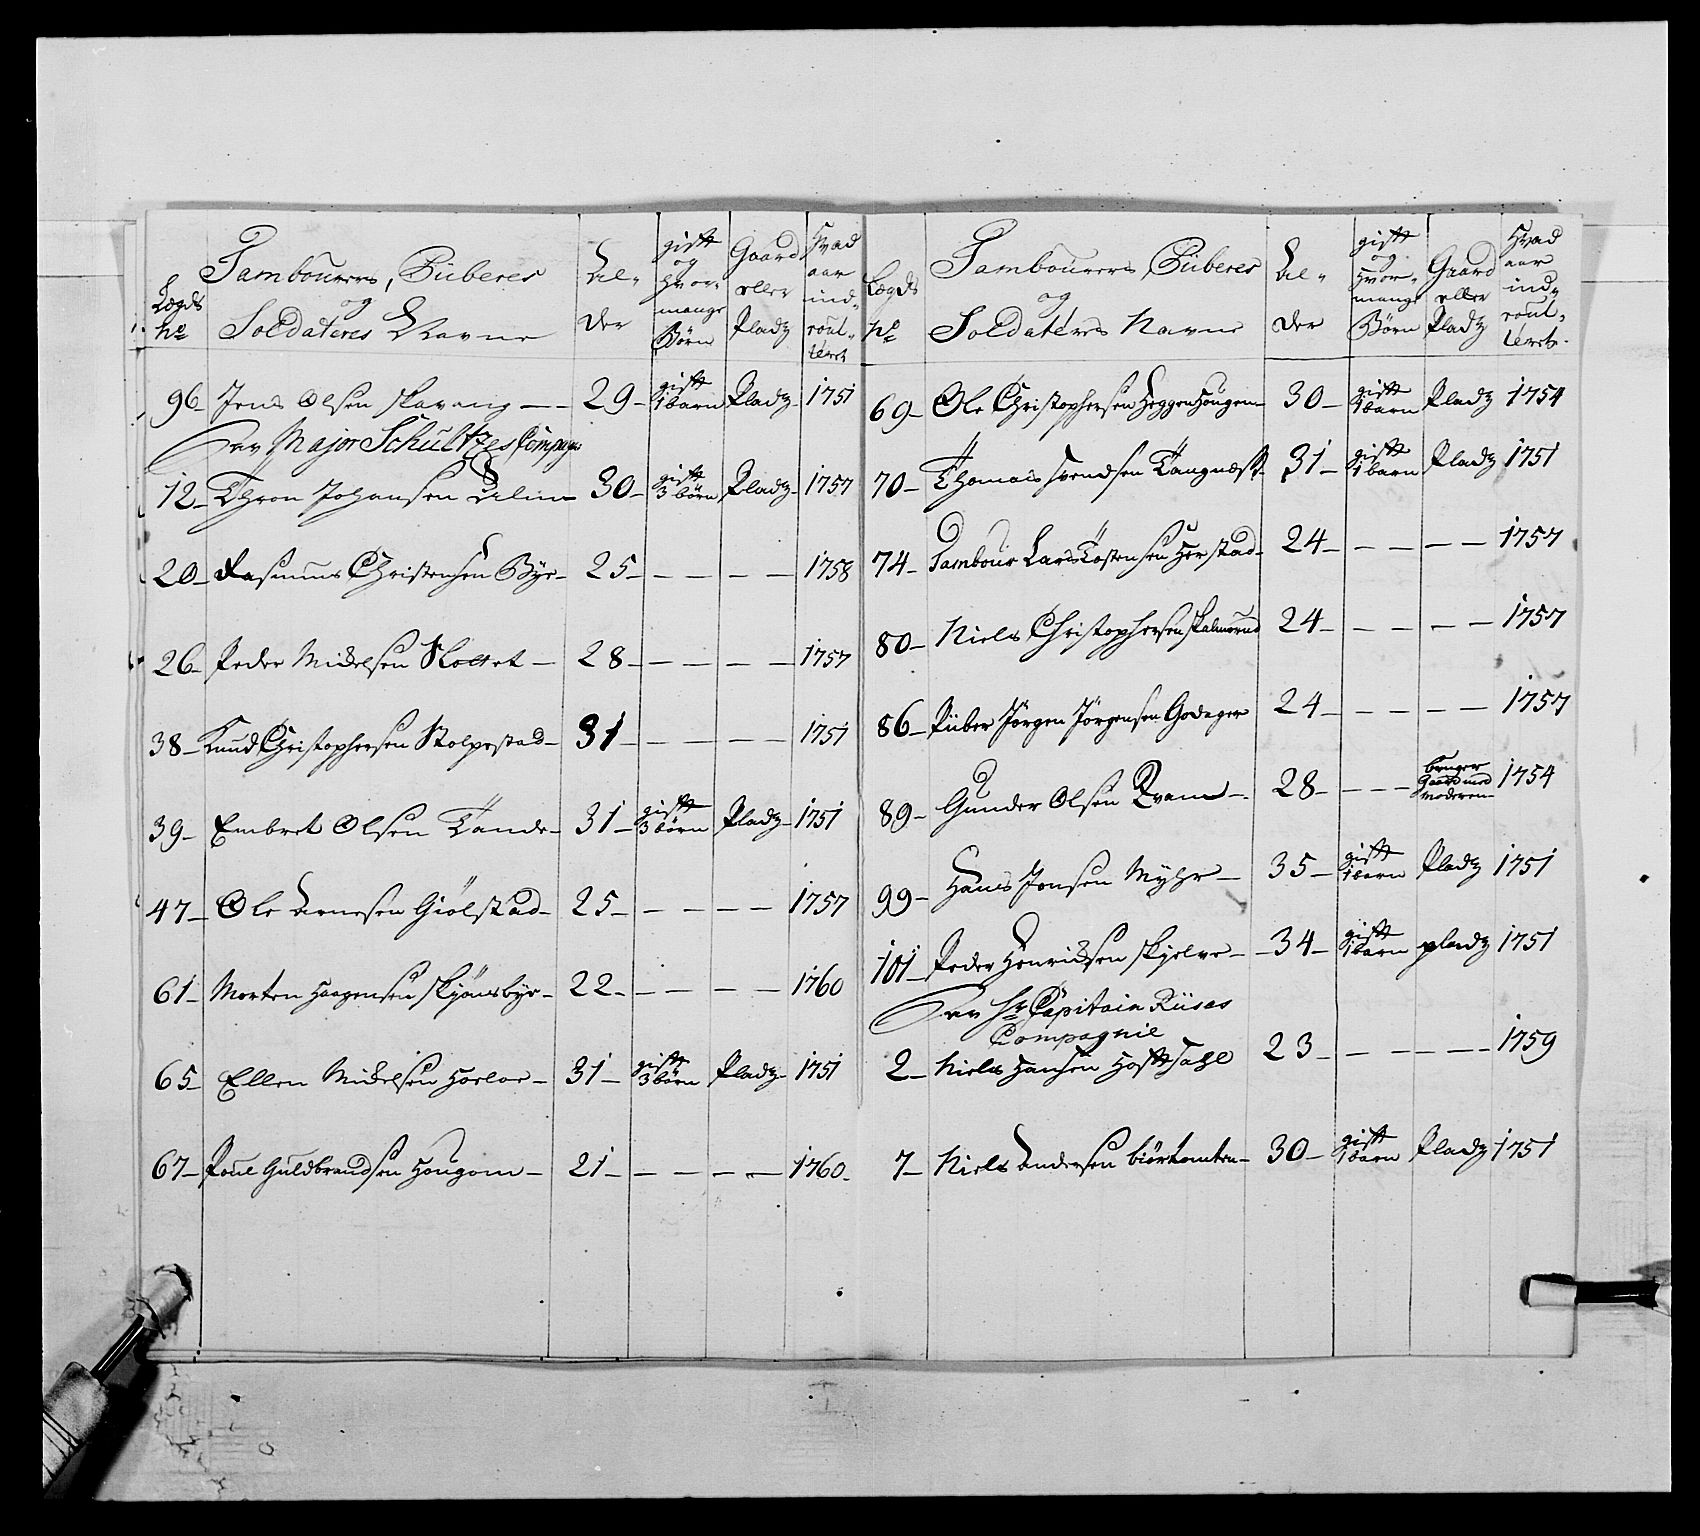 Lægds No | Tambourers, Püberes og Soldateres Navne | Al- der | gift og hvor- mange Börn | Gaard eller Pladz | Hvad aar ind- roul- leret
96 - Jens Olsen Skavang - - 29 - gift 1 barn Pladz - 1751
Hr Major Schultzes Compag:
12 - Thron Johansen Alim 30 - gift 3 börn Pladz - 1757
20 - Rasmus Christensen Bye - 25 - - - - - 1758
26 - Peder Mickelsen Slottet - 28 - - - - - 1757
38 - Knud Christophersen Stolpestad - 31 - - - - - 1751
39 - Embret Olsen Tande - 31 - gift 3 börn Pladz - 1751
47 - Ole Arnesen Giölstad - 25 - - - - - 1757
61 - Morten Haagensen Skjönsbye - 22 - - - - - 1760
65 - Ellen Mickelsen Horloe - 31 - gift 3 börn Pladz - 1751
67 - Poul Guldbrandsen Hougom - 21 - - - - - 1760 -
Lægds No | Tambourers, Püberes og Soldateres Navne | Al- der | gift og hvor- mange Börn | Gaard eller Pladz | Hvad aar ind- roul- leret -
69 - Ole Christophersen Heggenhougen - 30 - gift 1 barn Pladz 1754
70 - Thomas Svendsen Tangnæss - 31 - gift 1 barn Pladz 1751
74 - Tambour Lars Tostensen Herstad - 24 - - - - - 1757
80 - Niels Christophersen Skalmerud 24 - - - - - 1757
86 - Püber Jörgen Jörgensen Godager 24 - - - - - 1757
89 - Gunder Olsen Qvam - 28 - - - - bruger Gaard med Moderen - 1754
99 - Hans Jensen Myhr - 35 - gift 1 barn Pladz 1751
101 - Peder Henricksen Skjelve - - 34 - gift 1 barn pladz 1751
Hr Capitain Riises
Compagnie
2 - Niels Hansen 23 - - - - - 1759
7 - Niels Andersen biörtomten - 30 - gift 1 barn Pladz 1751